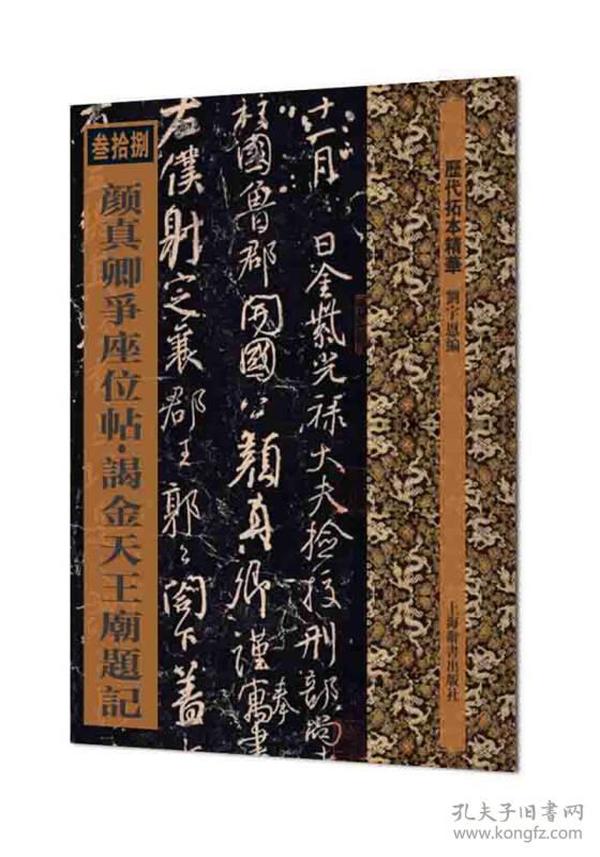 叁拾捌
颜真卿爭座位帖·謁金天王廟題記
十一月 日金紫光禄大夫檢挍刑部尚
柱國魯郡開國公顏真卿謹寓奉書
右僕射定襄郡王郭公閤下蓋
歷代拓本精華
劉宇恩編
上海辭書出版社
孔夫子旧书网
www.kongfz.com